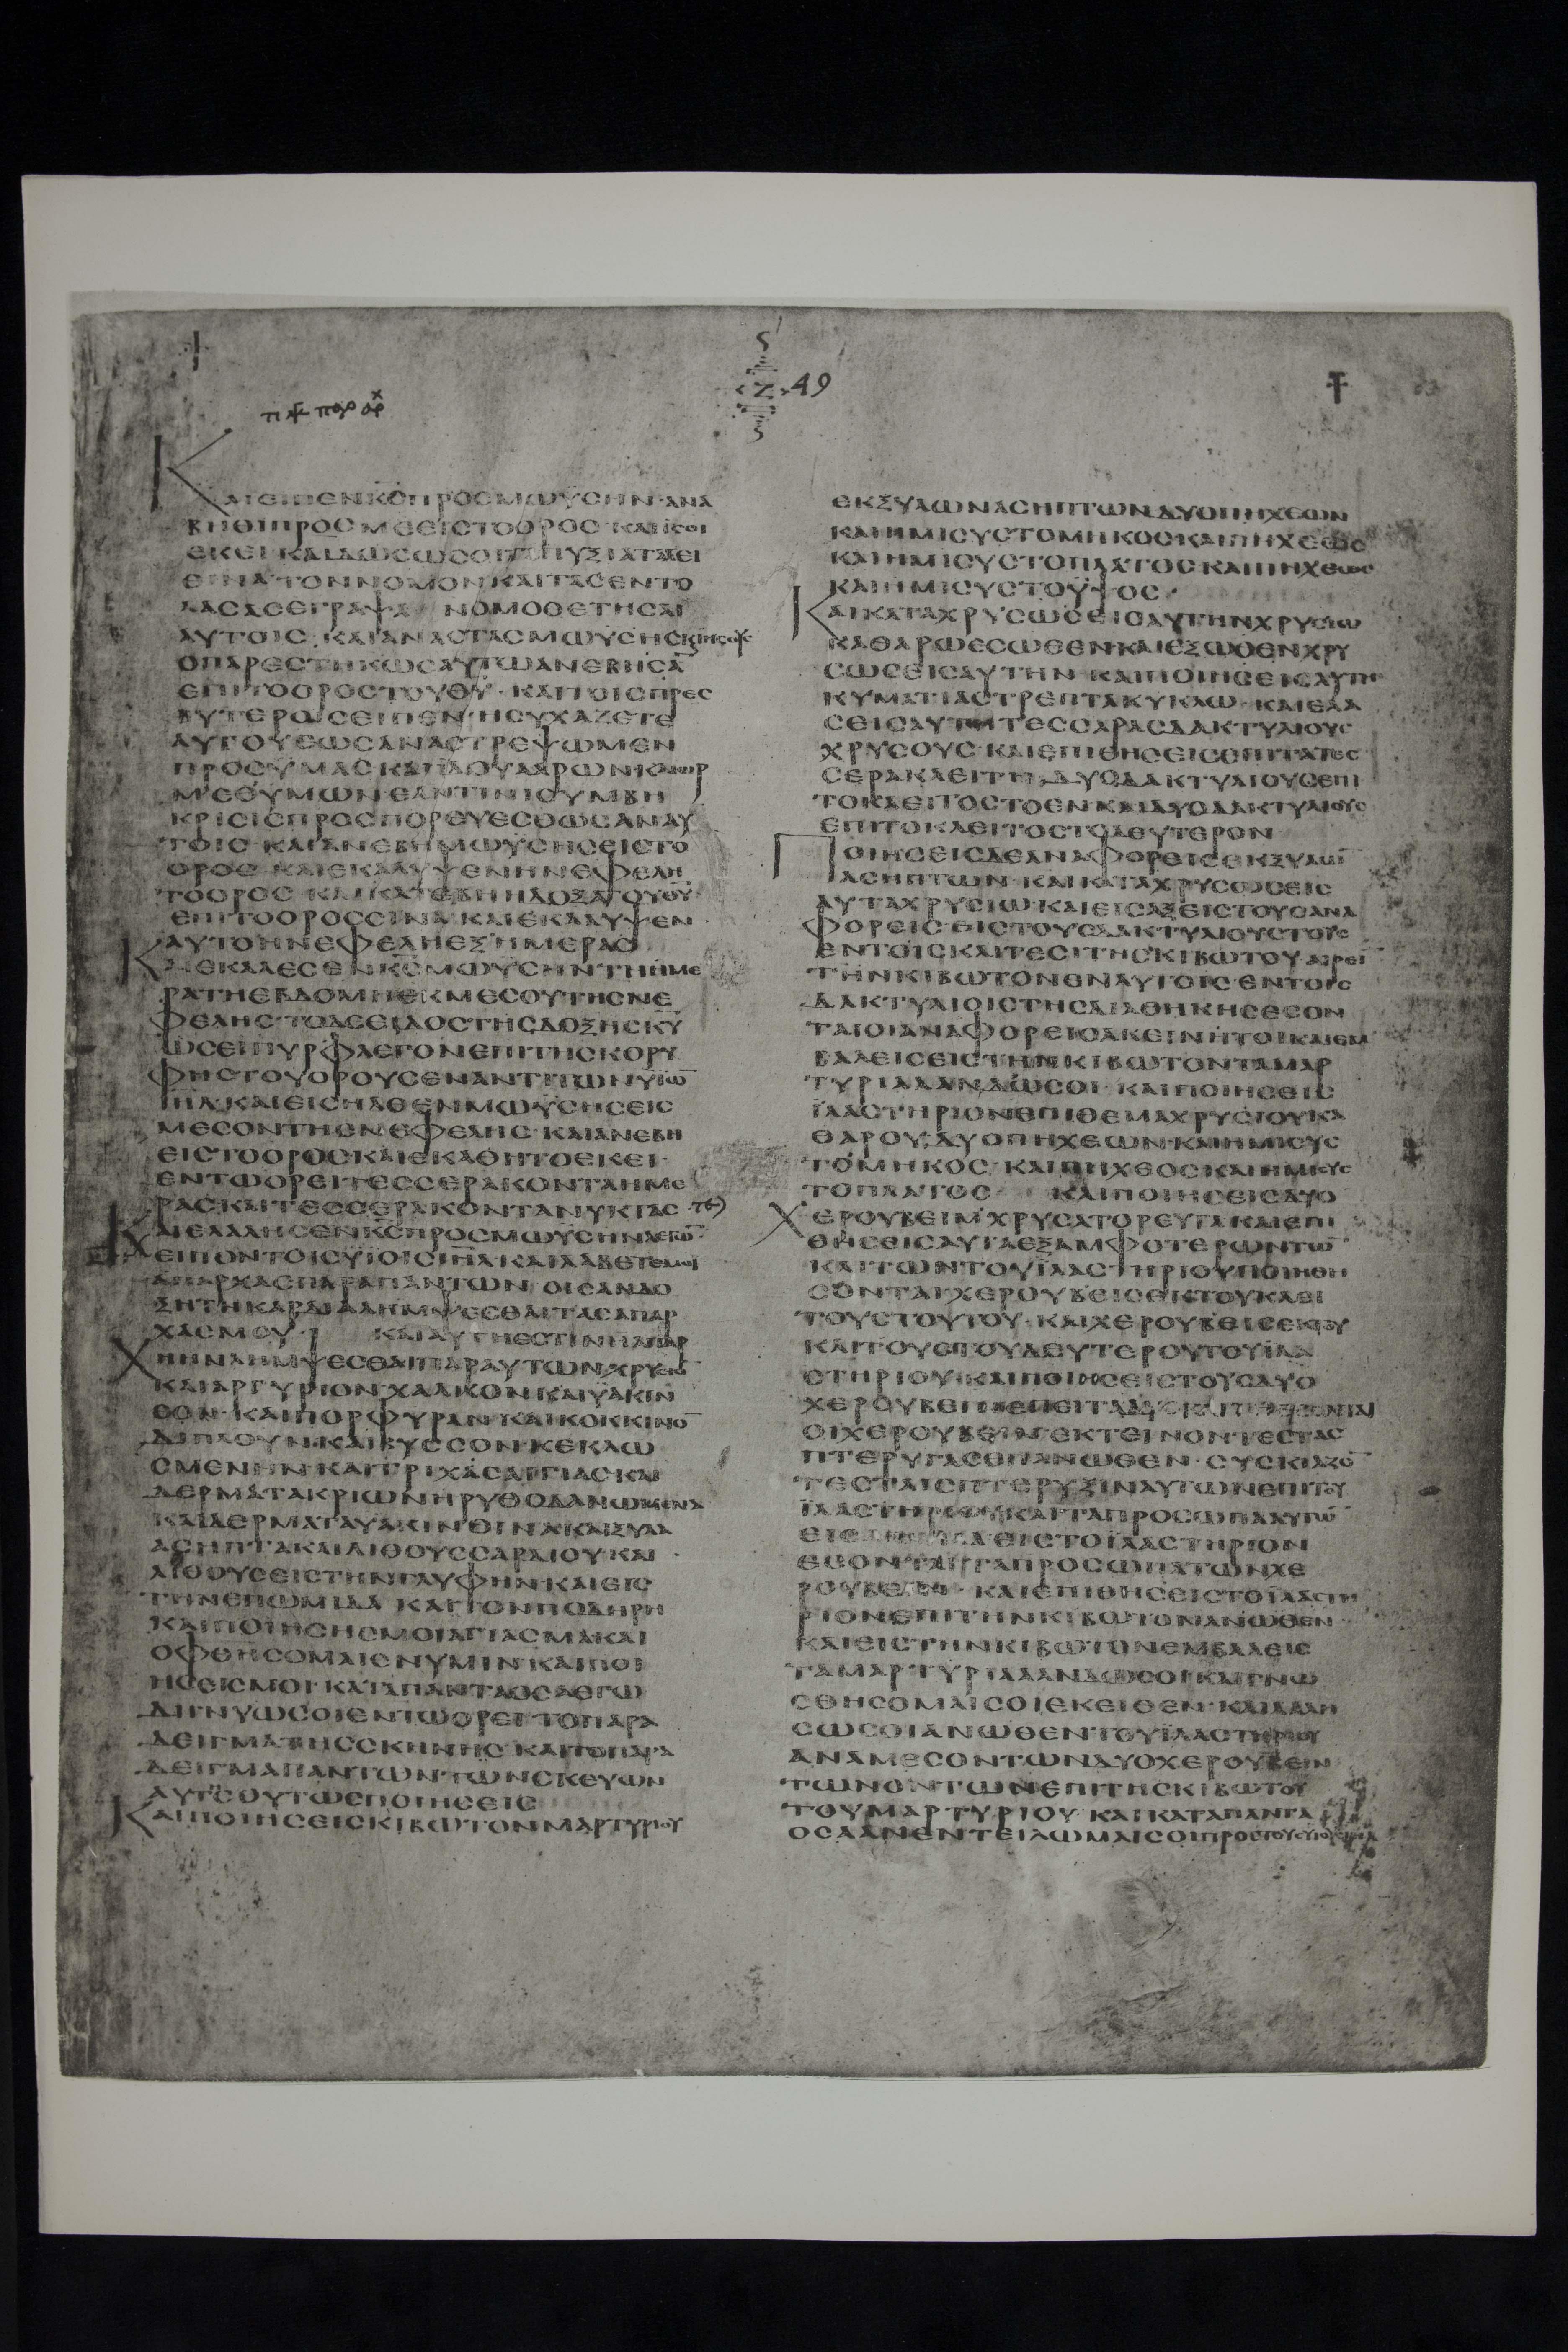 Ζ 49
ΚΑΙΕΙΠΕΝΚ̅Ϲ̅ΠΡΟϹΜΩΫϹΗΝ·ΑΝΑ
ΒΗΘΙΠΡΟϹΜΕΕΙϹΤΟΟΡΟϹ·ΚΑΙ
ΕΚΕΙ ΚΑΙΔΩϹΩϹΟΙ
ΝΑΤΟΝΝΟΜΟΝΚΑΙΤΑϹΕΝΤΟ
ΛΑϹΑϹΕΓΡΑΨΑ ΝΟΜΟΘΕΤΗϹΑΙ
ΑΥΤΟΙϹ ΚΑΙΑΝΑϹΤΑϹΜΩΫϹΗϹ
ΟΠΑΡΕϹΤΗΚΩϹΑΥΤΩΑΝΕΒΗϹΑ̅
ΕΠΙΤΟΟΡΟϹΤΟΥΘ̅Υ̅·ΚΑΙΤΟΙϹΠΡΕϹ
ΒΥΤΕΡΟΙϹΕΙΠΕΝ·ΗϹΥΧΑΖΕΤΕ
ΑΥΤΟΥΕΩϹΑΝΑϹΤΡΕΨΩΜΕΝ
ΠΡΟϹΫΜΑϹΚΑΙΪΔΟΥΑΑΡΩΝΚΑΙΩΡ
ΜΕΘΥΜΩΝ·ΕΑΝΤΙΝΙϹΥΜΒΗ
ΚΡΙϹΙϹΠΡΟϹΠΟΡΕΥΕϹΘΩϹΑΝΑΥ
ΤΟΙϹ·ΚΑΙΑΝΕΒΗΜΩΫϹΗϹΕΙϹΤΟ
ΟΡΟϹ·ΚΑΙΕΚΑΛΥΨΕΝΗΝΕΦΕΛΗ
ΤΟΟΡΟϹ·ΚΑΙΚΑΤΕΒΗΗΔΟΞΑΤΟΥΘ̅Υ̅
ΕΠΙΤΟΟΡΟϹϹΙΝΑ·ΚΑΙΕΚΑΛΥΨΕΝ
ΑΥΤΟΗΝΕΦΕΛΗΕΞΗΜΕΡΑϹ
ΚΑΙΕΚΑΛΕϹΕΝΚ̅Ϲ̅ΜΩΫϹΗΝΤΗΗΜΕ
ΡΑΤΗΕΒΔΟΜΗΕΚΜΕϹΟΥΤΗϹΝΕ
ΦΕΛΗϹ·ΤΟΔΕΕΙΔΟϹΤΗϹΔΟΞΗϹΚ̅Υ̅
ΩϹΕΙΠΥΡΦΛΕΓΟΝΕΠΙΤΗϹΚΟΡΥ
ΦΗϹΤΟΥΟΡΟΥϹΕΝΑΝΤΙΤΩΝΥΙΩ̅
Ι̅Η̅Λ̅·ΚΑΙΕΙϹΗΛΘΕΝΜΩΫϹΗϹΕΙϹ
ΜΕϹΟΝΤΗϹΝΕΦΕΛΗϹ·ΚΑΙΑΝΕΒΗ
ΕΙϹΤΟΟΡΟϹΚΑΙΕΚΑΘΗΤΟΕΚΕΙ·
ΕΝΤΩΟΡΕΙΤΕϹϹΕΡΑΚΟΝΤΑΗΜΕ
ΡΑϹΚΑΙΤΕϹϹΕΡΑΚΟΝΤΑΝΥΚΤΑϹ
ΚΑΙΕΛΑΛΗϹΕΝΚ̅Ϲ̅ΠΡΟϹΜΩΫϹΗΝΛΕΓΩ̅
ΕΙΠΟΝΤΟΙϹΫΙΟΙϹΙ̅Η̅Λ̅·ΚΑΙΛΑΒΕΤΕΜΟΙ
ΑΠΑΡΧΑϹΠΑΡΑΠΑΝΤΩΝ ΟΙϹΑΝΔΟ
ΞΗΤΗΚΑΡΔΙΑΛΗΜΨΕϹΘΑΙΤΑϹΑΠΑΡ
ΧΑϹΜΟΥ· ΚΑΙΑΥΤΗΕϹΤΙΝΗΑΠΑΡ
ΧΗΗΝΛΗΜΨΕϹΘΑΙΠΑΡΑΥΤΩΝΧΡΥϹΙΟ̅
ΚΑΙΑΡΓΥΡΙΟΝΧΑΛΚΟΝΚΑΙΥΑΚΙΝ
ΘΟΝ·ΚΑΙΠΟΡΦΥΡΑΝΚΑΙΚΟΚΚΙΝΟ̅
ΔΙΠΛΟΥΝ·ΚΑΙΒΥϹϹΟΝΚΕΚΛΩ
ϹΜΕΝΗΝΚΑΙΤΡΙΧΑϹΑΙΓΙΑϹΚΑΙ
ΔΕΡΜΑΤΑΚΡΙΩΝΗΡΥΘΟΔΑΝΩΜΕΝΑ
ΚΑΙΔΕΡΜΑΤΑΥΑΚΙΝΘΙΝΑΚΑΙΞΥΛΑ
ΑϹΗΠΤΑΚΑΙΛΙΘΟΥϹϹΑΡΔΙΟΥΚΑΙ
ΛΙΘΟΥϹΕΙϹΤΗΝΓΛΥΦΗΝΚΑΙΕΙϹ
ΤΗΝΕΠΩΜΙΔΑ ΚΑΙΤΟΝΠΟΔΗΡΗ
ΚΑΙΠΟΙΗϹΗϹΜΟΙΑΓΙΑϹΜΑΚΑΙ
ΟΦΘΗϹΟΜΑΙΕΝΥΜΙΝΚΑΙΠΟΙ
ΗϹΕΙϹΜΟΙ·ΚΑΤΑΠΑΝΤΑΟϹΑΕΓΩ
ΔΙΓΝΥΩϹΟΙΕΝΤΩΟΡΕΙ ΤΟΠΑΡΑ
ΔΕΙΓΜΑΤΗϹϹΚΗΝΗϹ ΚΑΙΤΟΠΑΡΑ
ΔΕΙΓΜΑΠΑΝΤΩΝΤΩΝϹΚΕΥΩΝ
ΑΥΤΗϹΟΥΤΩϹΠΟΙΗϹΕΙϹ
ΚΑΙΠΟΙΗϹΕΙϹΚΙΒΩΤΟΝΜΑΡΤΥΡΙΟΥ
ΕΚΞΥΛΩΝΑϹΗΠΤΩΝΔΥΟΠΗΧΕΩΝ
ΚΑΙΗΜΙϹΥϹΤΟΜΗΚΟϹΚΑΙΠΗΧΕΩϹ
ΚΑΙΗΜΙϹΥϹΤΟΠΛΑΤΟϹΚΑΙΠΗΧΕΩϹ
ΚΑΙΗΜΙϹΥϹΤΟΫΨΟϹ·
ΚΑΙΚΑΤΑΧΡΥϹΩϹΕΙϹΑΥΤΗΝΧΡΥϹΙΩ
ΚΑΘΑΡΩΕϹΩΘΕΝΚΑΙΕΞΩΘΕΝΧΡΥ
ϹΩϹΕΙϹΑΥΤΗΝ ΚΑΙΠΟΙΗϹΕΙϹΑΥΤΗ
ΚΥΜΑΤΙΑϹΤΡΕΠΤΑΚΥΚΛΩ·ΚΑΙΕΛΑ
ϹΕΙϹΑΥΤΗΤΕϹϹΑΡΑϹΔΑΚΤΥΛΙΟΥϹ
ΧΡΥϹΟΥϹ·ΚΑΙΕΠΙΘΗϹΕΙϹΕΠΙΤΑΤΕϹ
ϹΕΡΑΚΛΕΙΤΗ ΔΥΟΔΑΚΤΥΛΙΟΥϹΕΠΙ
ΤΟΚΛΕΙΤΟϹΤΟΕΝΚΑΙΔΥΟΔΑΚΤΥΛΙΟΥϹ
ΕΠΙΤΟΚΛΕΙΤΟϹΤΟΔΕΥΤΕΡΟΝ
ΠΟΙΗϹΕΙϹΔΕΑΝΑΦΟΡΕΙϹΕΚΞΥΛΩ̅
ΑϹΗΠΤΩΝ·ΚΑΙΚΑΤΑΧΡΥϹΩϹΕΙϹ
ΑΥΤΑΧΡΥϹΙΩ·ΚΑΙΕΙϹΑΞΕΙϹΤΟΥϹΑΝΑ
ΦΟΡΕΙϹΕΙϹΤΟΥϹΔΑΚΤΥΛΙΟΥϹΤΟΥϹ
ΕΝΤΟΙϹΚΛΙΤΕϹΙΤΗϹΚΙΒΩΤΟΥΑΙΡΕΙ̅
ΤΗΝΚΙΒΩΤΟΝΕΝΑΥΤΟΙϹ·ΕΝΤΟΙϹ
ΔΑΚΤΥΛΙΟΙϹΤΗϹΔΙΑΘΗΚΗϹΕϹΟΝ
ΤΑΙΟΙΑΝΑΦΟΡΕΙϹΑΚΕΙΝΗΤΟΙΚΑΙΕΜ
ΒΑΛΕΙϹΕΙϹΤΗΝΚΙΒΩΤΟΝΤΑΜΑΡ
ΤΥΡΙΑΑΑΝΔΩϹΟΙ·ΚΑΙΠΟΙΗϹΕΙϹ
ΪΛΑϹΤΗΡΙΟΝΕΠΙΘΕΜΑΧΡΥϹΙΟΥΚΑ
ΘΑΡΟΥ·ΔΥΟΠΗΧΕΩΝ·ΚΑΙΗΜΙϹΥϹ
ΤΟΜΗΚΟϹ·ΚΑΙΠΗΧΕΟϹΚΑΙΗΜΙϹΥϹ
ΤΟΠΛΑΤΟϹ ΚΑΙΠΟΙΗϹΕΙϹΔΥΟ
ΧΕΡΟΥΒΕΙΜΧΡΥϹΑΤΟΡΕΥΤΑΚΑΙΕΠΙ
ΘΗϹΕΙϹΑΥΤΑΕΞΑΜΦΟΤΕΡΩΝΤΩ̅
ΚΛΙΤΩΝΤΟΥΪΛΑϹΤΗΡΙΟΥΠΟΙΗΘΗ
ϹΟΝΤΑΙΧΕΡΟΥΒΕΙϹΕΚΤΟΥΚΛΕΙ
ΤΟΥϹΤΟΥΤΟΥ·ΚΑΙΧΕΡΟΥΒΕΙϹΕΚΤΟΥ
ΚΛΙΤΟΥϹΤΟΥΔΕΥΤΕΡΟΥΤΟΥΪΛΑ
ϹΤΗΡΙΟΥ·ΚΑΙΠΟΙΗϹΕΙϹΤΟΥϹΔΥΟ
ΧΕΡΟΥΒΕΙ
ΟΙΧΕΡΟΥΒΕΙΝΕΚΤΕΙΝΟΝΤΕϹΤΑϹ
ΠΤΕΡΥΓΑϹΕΠΑΝΩΘΕΝ·ϹΥϹΚΙΑΖΟ̅
ΤΕϹΤΑΙϹΠΤΕΡΥΞΙΝΑΥΤΩΝΕΠΙΤΟΥ
ΪΛΑϹΤΗΡΙΟΥΚΑΙΤΑΠΡΟϹΩΠΑΑΥΤΩ̅
ΕΙϹ ΕΙϹΤΟΪΛΑϹΤΗΡΙΟΝ
ΕϹΟΝΤΑΙΤΑΠΡΟϹΩΠΑΤΩΝΧΕ
ΡΟΥΒΕΙΝ·ΚΑΙΕΠΙΘΗϹΕΙϹΤΟΪΛΑϹΤΗ
ΡΙΟΝΕΠΙΤΗΝΚΙΒΩΤΟΝΑΝΩΘΕΝ
ΚΑΙΕΙϹΤΗΝΚΙΒΩΤΟΝΕΜΒΑΛΕΙϹ
ΤΑΜΑΡΤΥΡΙΑΑΑΝΔΩϹΟΙΚΑΙΓΝΩ
ϹΘΗϹΟΜΑΙϹΟΙΕΚΕΙΘΕΝ·ΚΑΙΛΑΛΗ
ϹΩϹΟΙΑΝΩΘΕΝΤΟΥΪΛΑϹΤΗΡΙΟΥ
ΑΝΑΜΕϹΟΝΤΩΝΔΥΟΧΕΡΟΥΒΕΙΝ
ΤΩΝΟΝΤΩΝΕΠΙΤΗϹΚΙΒΩΤΟΥ
ΤΟΥΜΑΡΤΥΡΙΟΥ ΚΑΙΚΑΤΑΠΑΝΤΑ
ΟϹΑΑΝΕΝΤΕΙΛΩΜΑΙϹΟΙΠΡΟϹΤΟΥϹΥΙΟΥϹ